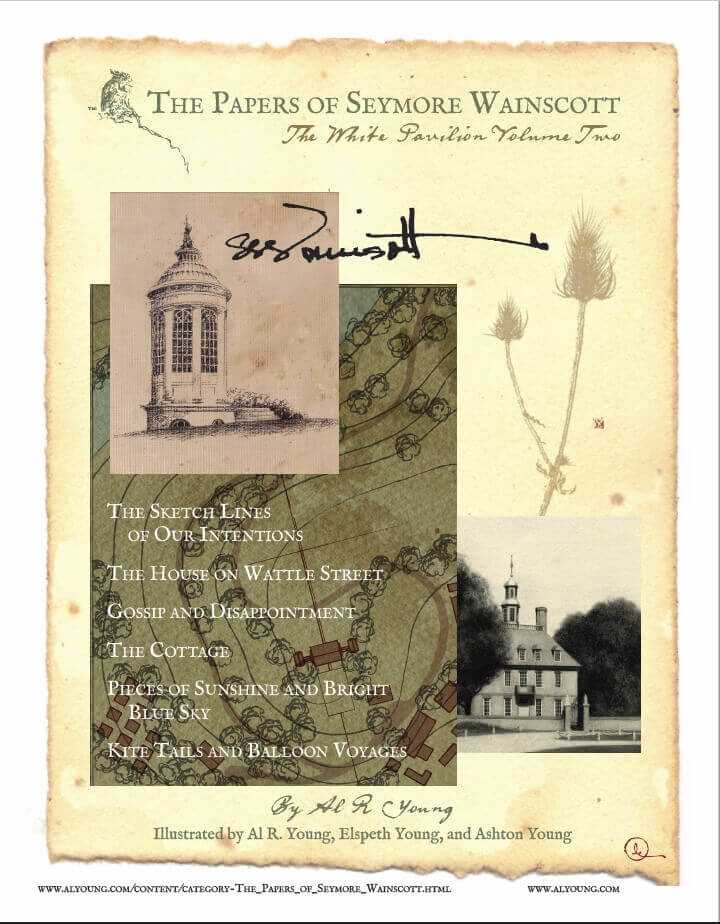 The Papers of Seymore Wainscott
The White Pavilion Volume Two
The Sketch Lines
of Our Intentions
The House on Wattle Street
Gossip and Disappointment
The Cottage
Pieces of Sunshine and Bright
Blue Sky
Kite Tails and Balloon Voyages
By Al R Young
Illustrated by Al R. Young, Elspeth Young, and Ashton Young
www.alyoung.com/content/category-The_Papers_of_Seymore_Wainscott.html
www.alyoung.com